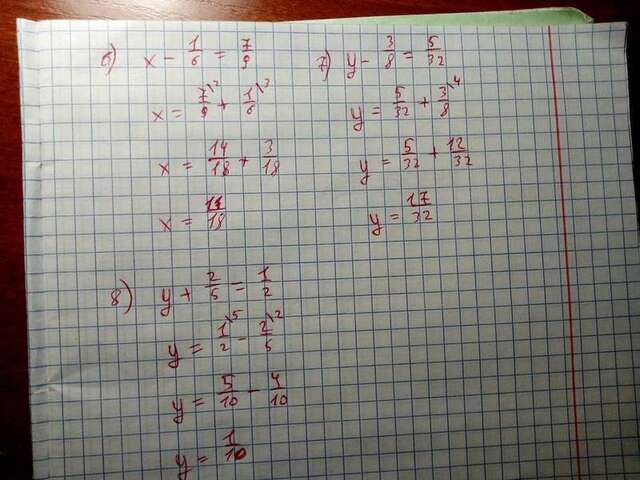 6) x - 1/6 = 7/9
x = 7/9\2 + 1/6\3
x = 14/18 + 3/18
x = 17/18
7) y - 3/8 = 5/32
y = 5/32 + 3/8\4
y = 5/32 + 12/32
y = 17/32
8) y + 2/5 = 1/2
y = 1/2\5 - 2/5\2
y = 5/10 - 4/10
y = 1/10